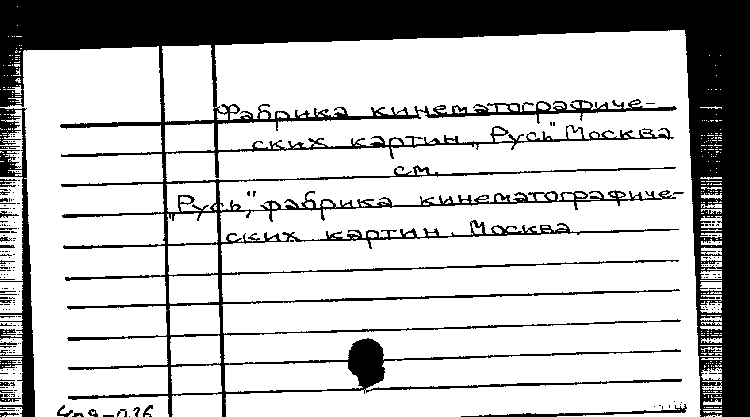 Фабрика кинематографиче-
ских картин „Русь" Москва
см.
„Русь", фабрика кинематографиче-
ских картин. Москва.